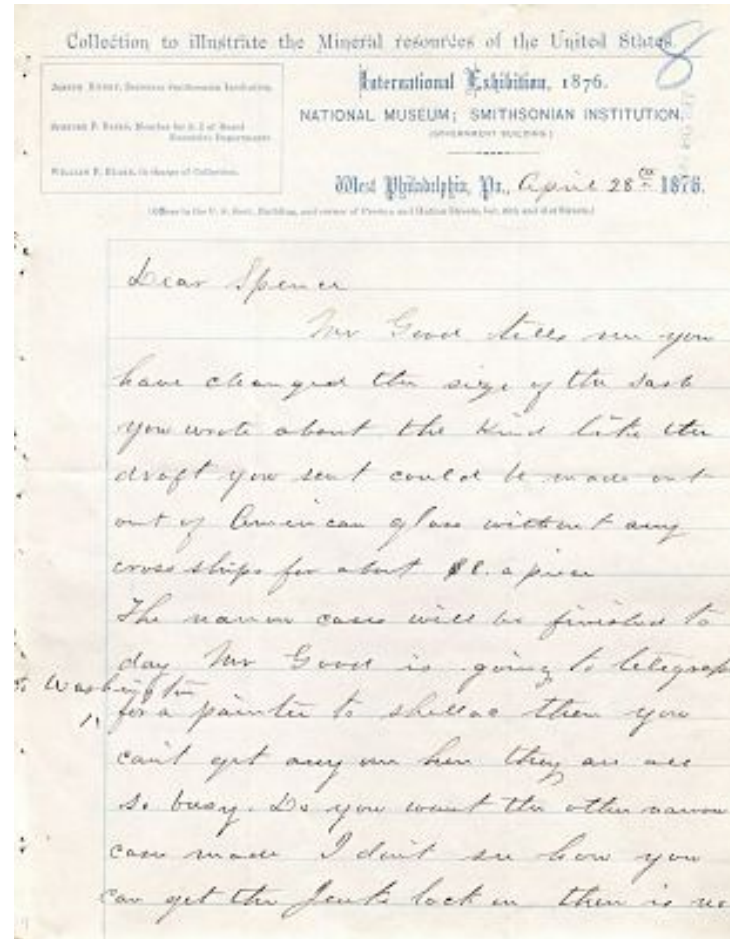 Collection to illustrate the Mineral resources of the United States.
8
JOSEPH HENRY, Secretary Smithsonian Institution.
SPENCER F. BAIRD, Member for S. I. of Board
Executive Departments.
WILLIAM P. BLAKE, in charge of Collection.
International Exhibition, 1876.
NATIONAL MUSEUM; SMITHSONIAN INSTITUTION.
(GOVERNMENT BUILDING.)
West Philadelphia, Pa., April 28th 1876.
Dear Spence
Mr Good tells me you
have changed the size of the sash
you wrote about the kind like the
draft you sent could be made out
out of American glass without any
cross strips for about $8. a piece
The narrow cases will be finished to
day Mr Good is going to telegraph
to Washington
for a painter to shellac them you
can't get any one here they are all
so busy. Do you want the other narrow
case made I don't see how you
can get the Jenks lock on there is no